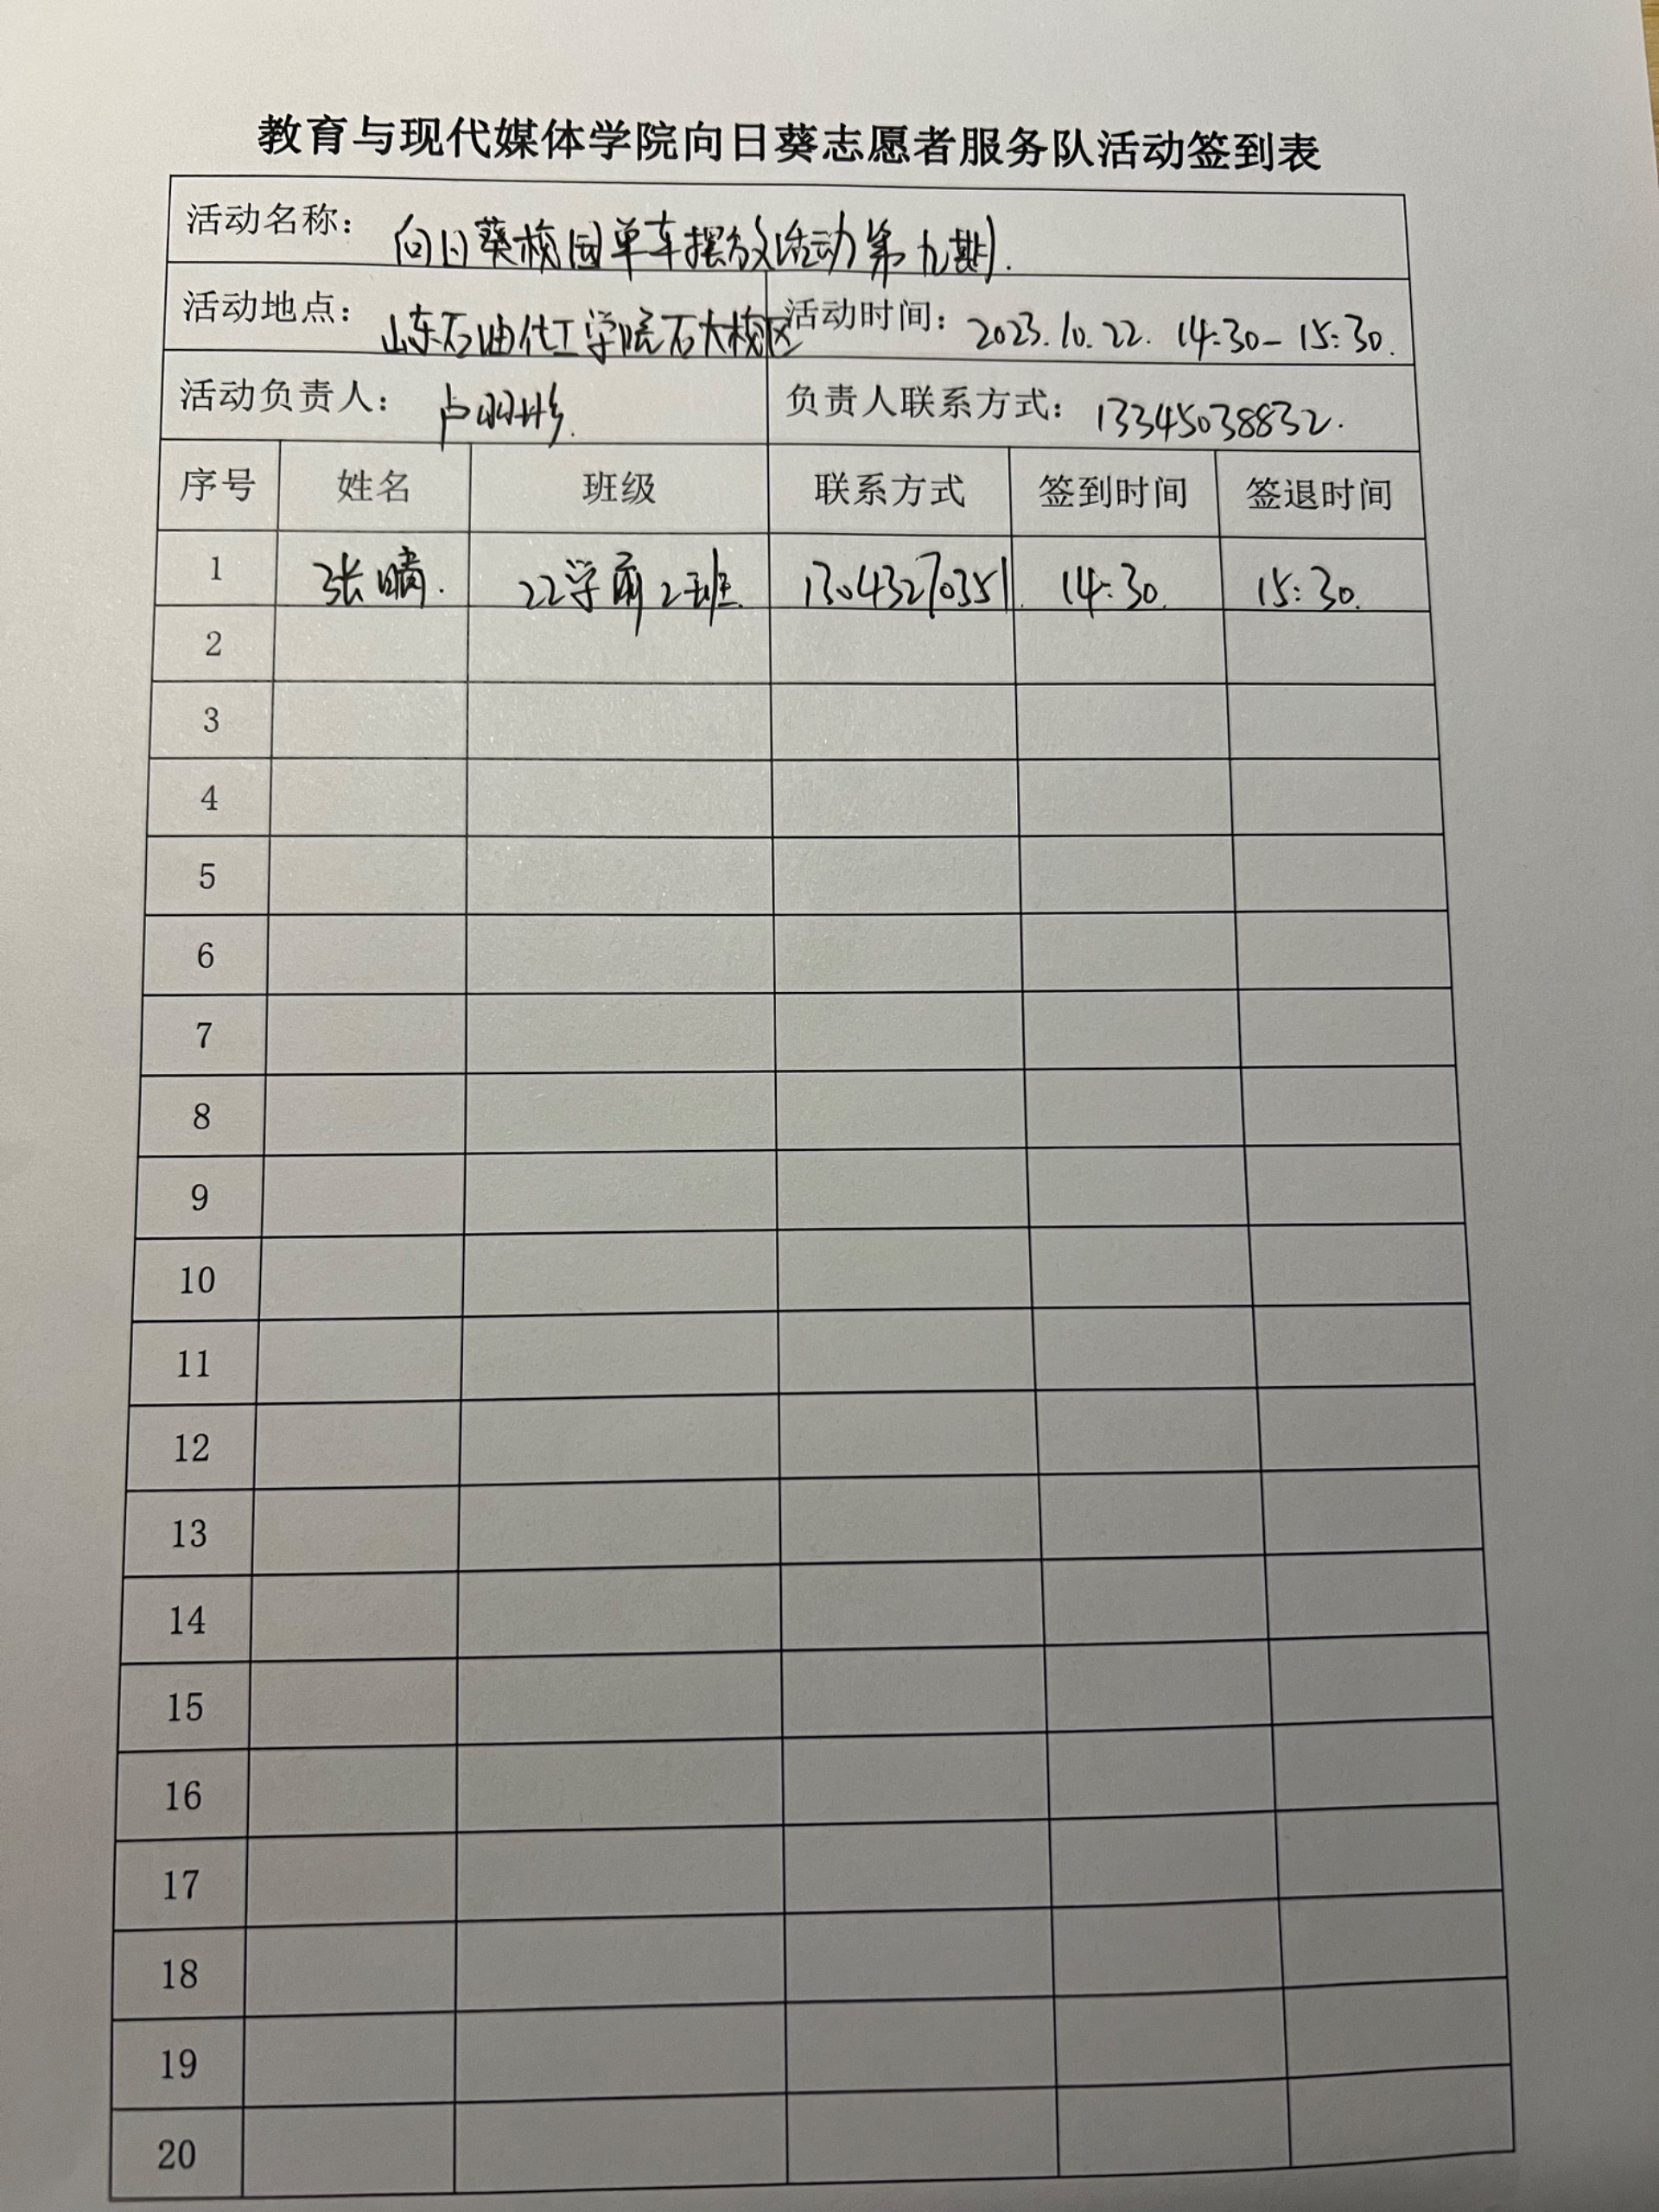 教育与现代媒体学院向日葵志愿者服务队活动签到表
活动名称： 向日葵校园单车摆放活动第九期.
活动地点： 山东石油化工学院石大校区 活动时间： 2023.10.22. 14:30-15:30.
活动负责人： 卢羽彤. 负责人联系方式： 13345038832.
序号 姓名 班级 联系方式 签到时间 签退时间
1 张晴. 22学前2班. 13043270351. 14:30. 15:30.
2
3
4
5
6
7
8
9
10
11
12
13
14
15
16
17
18
19
20